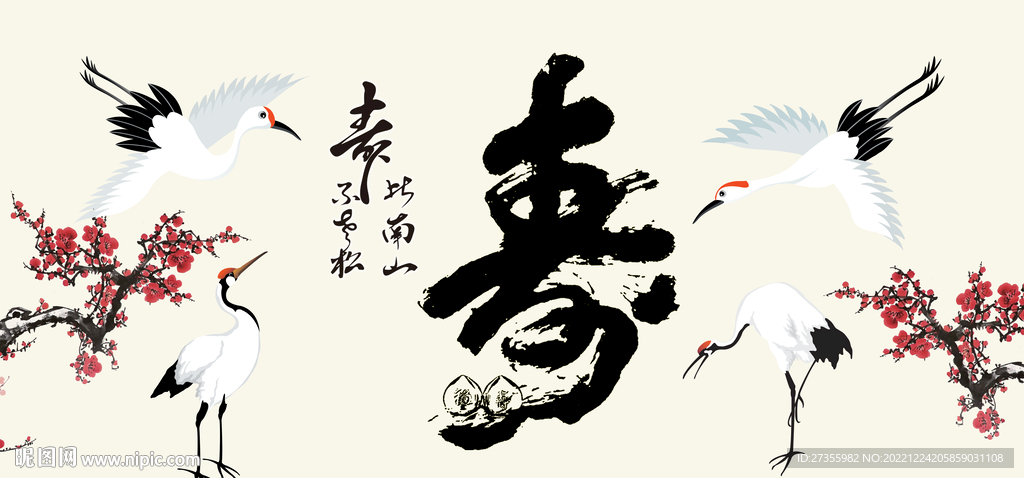 寿
寿比南山
不老松
昵图网 www.nipic.com
ID:27355982 NO:20221224205859031108